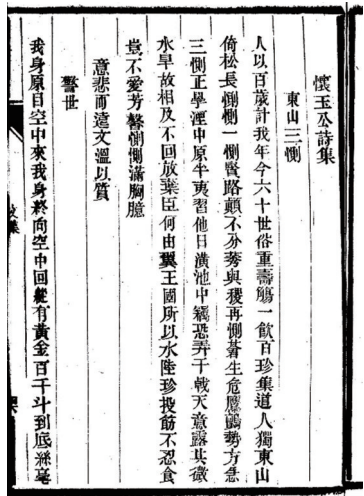 懷玉公詩集
東山三惻
人以百歲計我年今六十世俗重壽觴一飲百珍集道人獨東山
倚松長惻惻一惻賢路顛不分莠與稷再惻蒼生危鷹鸇勢方急
三惻正學湮中原半夷習他日潢池中竊恐弄干戟天意露其微
水旱故相及不回放棄臣何由翼王國所以水陸珍投筯不忍食
豈不愛芳馨惻惻滿胸臆
意悲而遠文溫以質
警世
我身原自空中來我身終向空中回縱有黃金百千斗到底絲毫